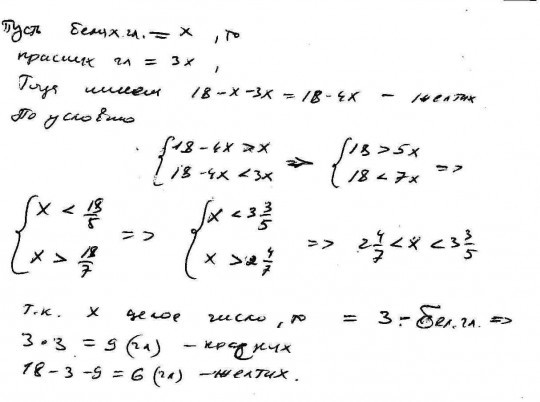 Пусть белых гл. = x, то
красных гл = 3x,
Тогда имеем 18-x-3x = 18-4x - желтых
По условию
{18-4x > x => {18 > 5x
{18-4x < 3x {18 < 7x =>
{x < 18/5 => {x < 3 3/5 => 2 4/7 < x < 3 3/5
{x > 18/7 {x > 2 4/7
т.к. x целое число, то = 3 - бел. гл. =>
3·3 = 9 (гл) - красных
18-3-9 = 6 (гл) - желтых.